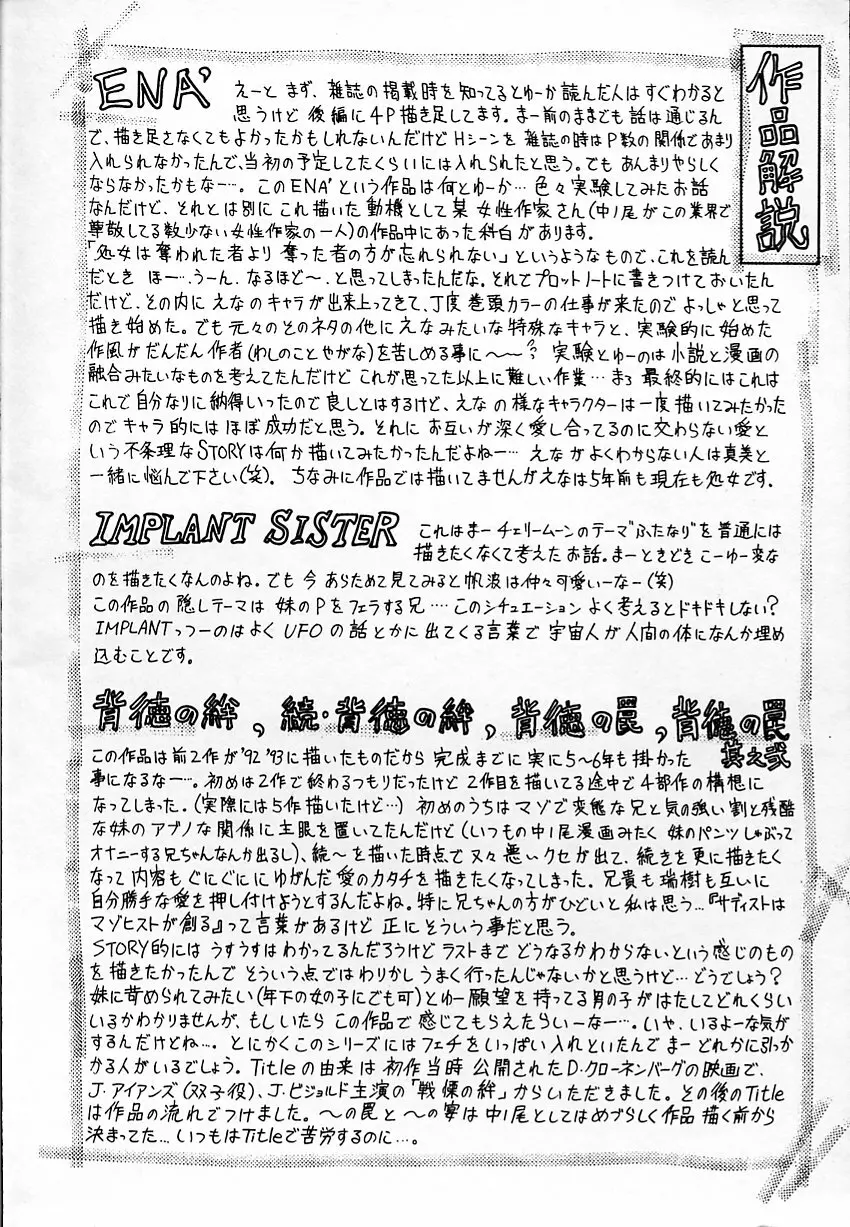 作品解説
ENA'
えーと まず、雑誌の掲載時を知ってるとゆーか読んだ人は すぐわかると
思うけど 後編に4P描き足してます。まー前のままでも 話は通じるん
で、描き足さなくてもよかったかもしれないんだけど Hシーンを 雑誌の時はP数の関係であまり
入れられなかったんで、当初の予定してたくらいには入れられたと思う。でも あんまりやらしく
ならなかったかもなー…。このENA'という作品は何とゆーか… 色々実験してみたお話
なんだけど、それとは別に これ描いた動機として某 女性作家さん(中ノ尾がこの業界で
尊敬してる数少ない女性作家の一人)の作品中にあった科白があります。
「処女は奪われた者より 奪った者の方が忘れられない」というようなもので、これを読ん
だとき ほー…、うーん、なるほど〜、と思ってしまったんだな。それでプロットノートに書きつけておいたん
だけど、その内に えなのキャラが出来上ってきて、丁度 巻頭カラーの仕事が来たので よっしゃと思って
描き始めた。でも元々のそのネタの他に えなみたいな特殊なキャラと、実験的に始めた
作風が だんだん 作者(わしのことやがな)を苦しめる事に〜〜? 実験とゆーのは小説と漫画の
融合みたいなものを考えてたんだけど これが思ってた以上に難しい作業… まぁ 最終的にはこれは
これで自分なりに納得いったので良しとはするけど、えなの様なキャラクターは一度描いてみたかった
のでキャラ的には ほぼ成功だと思う。それに お互いが深く愛し合ってるのに交わらない愛と
いう不条理なSTORYは何か描いてみたかったんだよねー… えながよくわからない人は真美と
一緒に悩んで下さい(笑)。 ちなみに作品では描いてませんがえなは5年前も現在も処女です。
IMPLANT SISTER
これはまー チェリームーンのテーマ"ふたなり"を普通には
描きたくなくて考えたお話。まーときどき こーゆー変な
のを描きたくなんのよね。でも 今 あらためて見てみると 帆波は仲々可愛いーなー(笑)
この作品の隠しテーマは 妹のPをフェラする兄 ‥‥このシチュエーション よく考えるとドキドキしない?
IMPLANTっつーのはよく UFOの話とかに 出てくる言葉で 宇宙人が人間の体になんか埋め
込むことです。
背徳の絆, 続・背徳の絆, 背徳の罠, 背徳の罠
其之弐
この作品は前2作が'92 '93に描いたものだから 完成までに 実に5〜6年も掛かった
事になるなー…。初めは2作で終わるつもりだったけど 2作目を描いてる途中で 4部作の構想に
なってしまった。(実際には5作描いたけど…) 初めのうちは マゾで変態な兄と気の強い 割と残酷
な妹の アブノな関係に主眼を置いてたんだけど(いつもの中ノ尾漫画みたく 妹のパンツしゃぶって
オナニーする兄ちゃんなんか出るし)、続〜を描いた時点で又々 悪いクセが出て、続きを更に描きたく
なって 内容も ぐにぐにに ゆがんだ愛のカタチを描きたくなってしまった。兄貴も瑞樹も互いに
自分勝手な愛を押し付けようとするんだよね。特に兄ちゃんの方がひどいと私は思う…『サディストは
マゾヒストが創る』って言葉があるけど 正にそういう事だと思う。
STORY的には うすうすは わかってるんだろうけど ラストまで どうなるかわからないという感じのもの
を描きたかったんで そういう点ではわりかし うまく行ったんじゃないかと思うけど… どうでしょう?
妹に苛められてみたい(年下の女の子にでも可)とゆー願望を持ってる男の子がはたしてどれくらい
いるかわかりませんが、もしいたら この作品で 感じてもらえたらいーなー…。いや、いるよーな気が
するんだけどね…。とにかくこのシリーズにはフェチをいっぱい入れといたんで まー どれかに引っか
かる人がいるでしょう。Titleの由来は 初作当時 公開されたD・クローネンバーグの映画で、
J・アイアンズ(双子役)、J・ビジョルド主演の「戦慄の絆」からいただきました。その後のTitle
は作品の流れでつけました。〜の罠と〜の宴は中ノ尾としてはめづらしく作品 描く前から
決まってた… いつもはTitleで苦労するのに…。